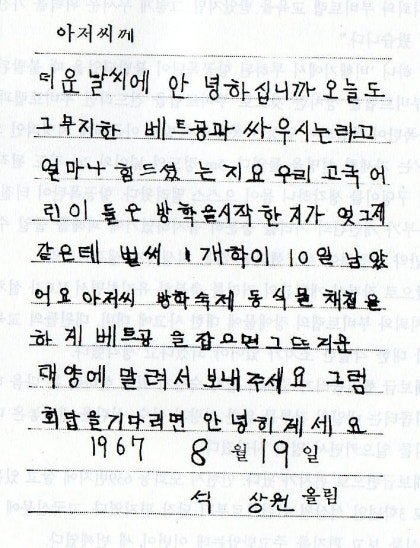 아저씨께
더운 날씨에 안녕하십니까 오늘도
그무지한 베트공과 싸우시는라고
얼마나 힘드셨는지요 우리 고국 어
린이들은 방학을시작한지가 엇그제
같은테 벌써 개학이 10일 남았
어요 아저씨 방학숙제 동식물 채집은
하지 베트공을 잡으면 그 뜨거운
태양에 말려서 보내주세요 그럼
회답을기다리면 안녕히게세요
1967 8월 19일
석 상원 올림